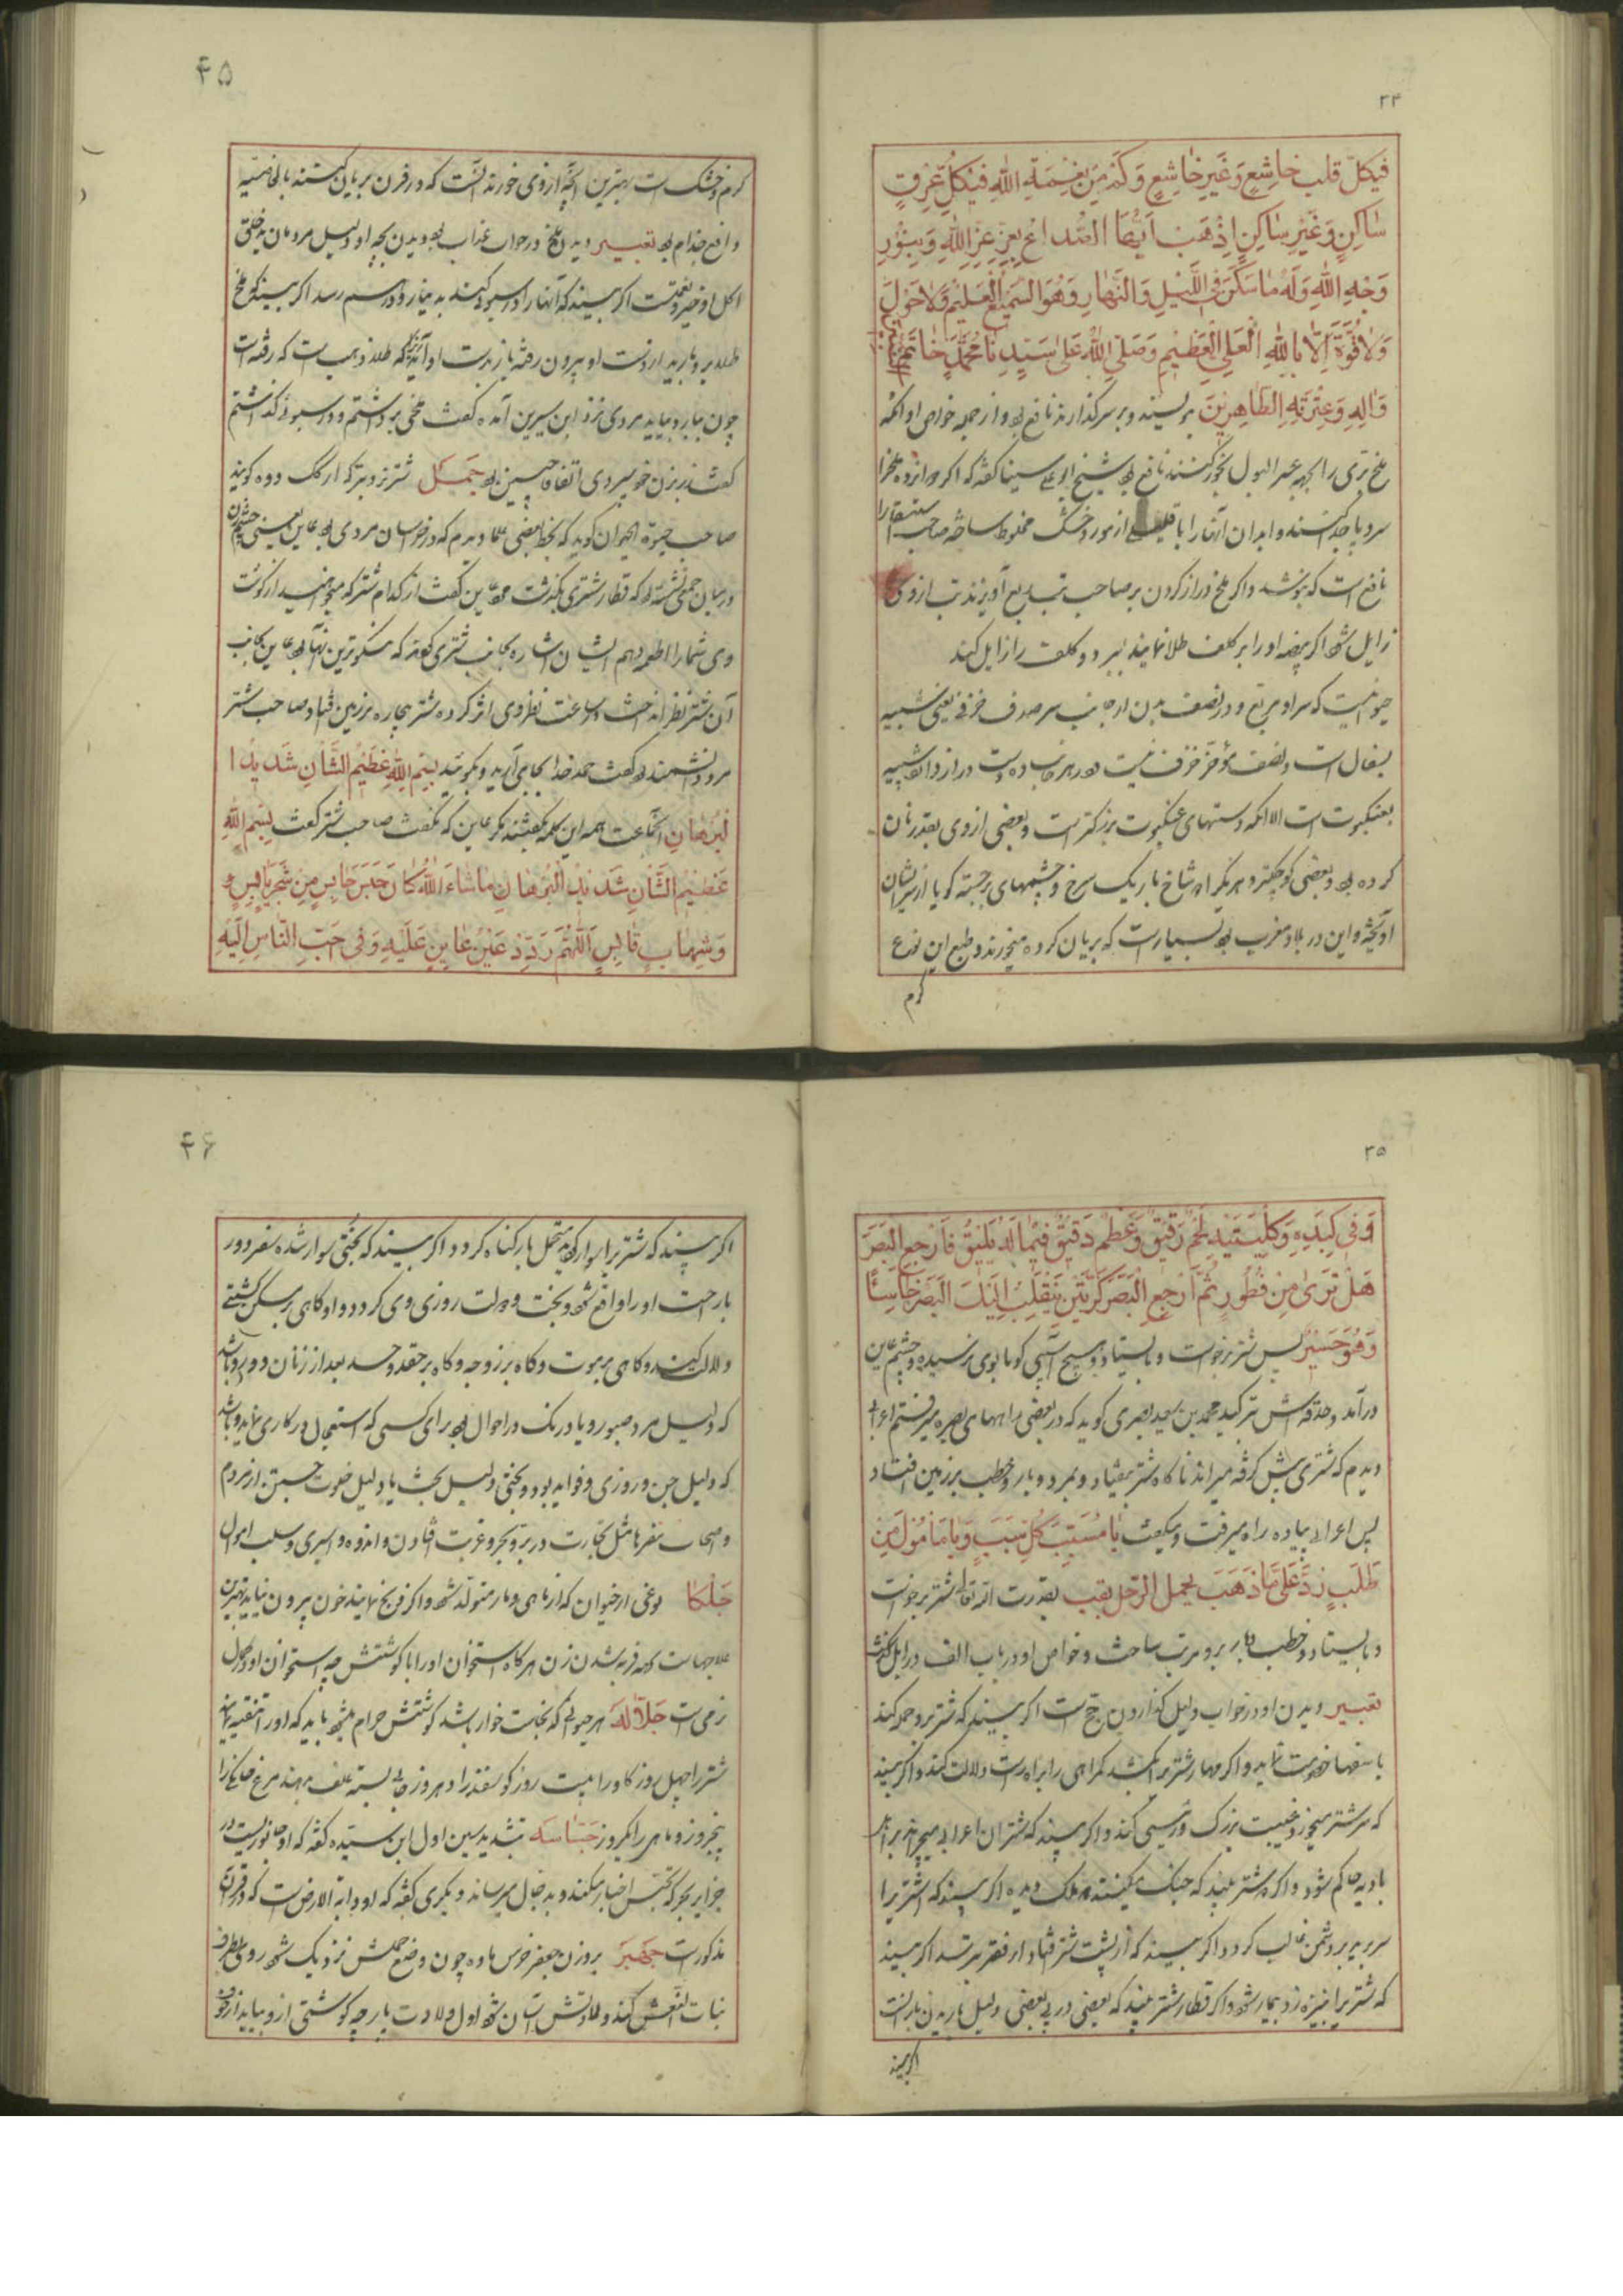 ۲۴
فیکلّ قلب خاشِعٍ وَغَیرِ خاشِعٍ وَکَمْ مِن نِعْمَةِ اللهِ فیکلِّ عِرقٍ
سٰاکِنٍ وَغَیْرِ سٰاکِنٍ اِذْهَبْ اَیُّهَا الصُّداعُ بِعِزِّ عِزِّ اللهِ وَبِنُورِ
وَجْهِ اللهِ وَلَهُ مٰا سَکَنَ فِی اللَّیْلِ وَالنَّهٰارِ وَهُوَ السَّمیعُ الْعَلیمُ وَلاٰ حَوْلَ
وَلاٰ قُوَّةَ اِلاّٰ بِاللهِ الْعَلیِّ الْعَظیمِ وَصَلَّی اللهُ عَلیٰ سَیِّدِنٰا مُحَمَّدٍ خٰاتَمِ
وَاٰلِهِ وَعِتْرَتِهِ الطّٰاهِرینَ بنویسند و بر سر گذارند نافع بود و از جمله خواص او آنکه
ملخ بری را بجهة عسر البول بخور کنند نافع بود شیخ ابو علی سینا گفته که اکر دوازده ملخ را
سر و پا جدا کنند و ابدان آنها را با قلیلی از مورد خشک مخلوط ساخته صاحب استسقا را
نافع است که بنوشد و اکر ملخ دراز کردن بر صاحب تب ربع آویزند تب از وی
زایل شود اکر بیضه او را بر کلف طلا نمایند ببرد و کلف را زایل کند
حیوانیست که سر او مربع و در نصف بدن از جانب سر صدف خزفی یعنی شبیه
بسفال است و نصف مؤخر خزف نیست و در هر جانب ده دست دراز دارد شبیه
بعنکبوت است الا آنکه دستهای عنکبوت بزرکتر است و بعضی از وی بقدر نان
کرده بود و بعضی کوچکتر و هر یک را دو شاخ باریک سرخ و چشمهای برجسته کویا از سر ایشان
آویخته و این در بلاد مغرب بود بسیار است که بریان کرده میخورند و طبع این نوع
کرم
۴۵
کرم و خشک است بهترین آنچه از وی خورند آنست که در فرن بریان کنند بالخاصیه
دافع جذام بود تعبیر دیدن ملخ در خواب عذاب بود دیدن بچه او دلیل مردمان بدخلق
اکل او خیر و نعمت است اکر بیند که آنها را در سبو کند به دینار و درهم رسد اکر بیند که ملخ
طلا بر وی بارید از دست او بیرون رفته باز بدست او آید زیرا که طلا ذهب است که رفته است
چون ببارد بیاید مردی نزد ابن سیرین آمده کفت ملخی برداشتم و در سبوئی کذاشتم
کفت زن برزن خود میبری اتفاقا چنین بود جَمَل شتر نر و بزرکتر از کک و ده کویند
صاحب حیوة الحیوان کوید که بخط بعضی علما دیدم که در خراسان مردی بود عاین یعنی چشم زن
در میان جمعی نشسته بود که قطار شتری بکذشت عاین کفت از کدام شتر که میخواهید از کوشت
وی شما را اطعام دهم ایشان اشاره بجانب شتری کردند که نیکوترین آنها بود عاین بجانب
آن شتر نظر انداخت در ساعت نظر وی اثر کرده شتر بیچاره بر زمین فتاد و صاحب شتر
مرد دانشمند بود کفت حمد خدا بجا می آرید و بکوئید بِسْمِ اللهِ عَظیمِ الشَّأنِ شَدیدِ ا
لْبُرْهٰانِ آنجماعت همه این کلمه بکفتند مکر عاین که نکفت صاحب شتر کفت بِسْمِ اللهِ
عَظیمِ الشَّأنِ شَدیدِ الْبُرْهٰانِ مٰا شٰاءَ اللهُ کٰانَ حَبَسَ حٰابِسٍ مِن شَجَرٍ یٰابِسٍ
وَشِهٰابٍ قٰابِسٍ اَللّٰهُمَّ رَدِّدْ عَیْنَ عٰایِنٍ عَلَیْهِ وَفی حَبِّ النّٰاسِ اِلَیْهِ
۲۵
وَفی کَبِدِهِ وَکُلْیَتَیْهِ لَحْمٌ رَقیقٌ وَعَظْمٌ دَقیقٌ فیمٰا لَهُ یَلیقُ فَارْجِعِ الْبَصَرَ
هَلْ تَریٰ مِن فُطُورٍ ثُمَّ ارْجِعِ الْبَصَرَ کَرَّتَیْنِ یَنْقَلِبْ اِلَیْکَ الْبَصَرُ خٰاسِئًا
وَهُوَ حَسیرٌ پس شتر برخواست و بایستاد و هیچ آسیبی کویا بوی نرسیده و چشم عاین
درآمد و حدقه اش بترکید محمد بن سعید بصری کوید که در بعضی راههای بصره میرفتم اعرابی
دیدم که شتری پیش کرفته میراند ناکاه شتر بیفتاد و بمرد و بار و خطب بر زمین افتاد
پس اعرابی پیاده راه میرفت و میکفت یٰا مُسَبِّبَ کُلِّ سَبَبٍ وَیٰا مَأمُولَ مَن
طَلَبٍ رُدَّ عَلَیَّ مٰا ذَهَبَ بحمل الرّحل بقب بقدرت الله تعالی شتر برخواست
و بایستاد و خطب و بار بر او مرتب ساخت و خواص او در باب الف در ابل کذشت
تعبیر دیدن او در خواب دلیل کذاردن حج است اکر بیند که شتر بر او حمله کند
با سفها خصومت نماید و اکر مهار شتر بر کشد کمراهی را براه راست دلالت کند و اکر بیند
که سر شتر میخورد غیبت بزرک و رئیسی کند و اکر بیند که شتران اعرابی میچراند بر اهل
بادیه حاکم شود و اکر دو شتر بیند که جنک میکنند دو ملک دیده اکر بیند که شتر را
سر برید بر دشمن غالب کردد اکر بیند که از پشت شتر فتاد از فقر بترسد اکر بیند
که شتر برا خیزه زد بیمار شود و اکر قطار شتر بیند که بعضی در پی بعضی دلیل باریدن بارانست
اکر بیند
۴۶
اکر بیند که شتر بر او سوار کردید متحمل بار کناه کردد و اکر بیند که بختی سوار شده سفر دور
با راحت او را واقع شود و بخت و دولت روزی وی کردد و او کاهی بر مسکن کشتی
دلالت کند و کاهی بر موت و کاه بر زوجه و کاه بر حقد و حسد بعد از زنان دور و باشد
که دلیل مرد صبور و یا درنک در احوال بود برای کسی که استعجال در کاری نماید و باشد
که دلیل جن و روزی و فواید بود و بختی دلیل بخت یا دلیل خلوت جستن از مردم
و اصحاب سفرها مثل تجارت در بر و بحر و غربت فتادن و اندوه و اسیری و سلب اموال
جَلْکٰا نوعی از حیوان که از ماهی و مار متولد شود و اکر ذبح نمایند خون بیرون نیاید بهترین
علاجهاست که فربه شدن زن هر کاه استخوان او را با کوشتش چه استخوان او در کمال
نرمی است جَلّٰالَه هر حیوانی که نجاست خوار باشد کوشتش حرام میشود باید که او را
شتر را چهل روز کاو را بیست روز کوسفند را ده روز بسته علف دهند مرغ خانکی را
پنجروز و ماهی را یکروز جَسّٰاسَه بتشدید سین اول ابن سیده کفته که او جانوریست در
جزایر بحر که تجسس اخبار میکند و به دجال میرساند دیکری کفته که او دابة الارض است که در قرآن
مذکور است جَهْبَر بر وزن جعفر خرس ماده چون وضع حملش نزدیک شود روی بطرف
بنات النعش کند ولادتش آسان شود اول ولادت پارچه کوشتی از او بیاید از خوف